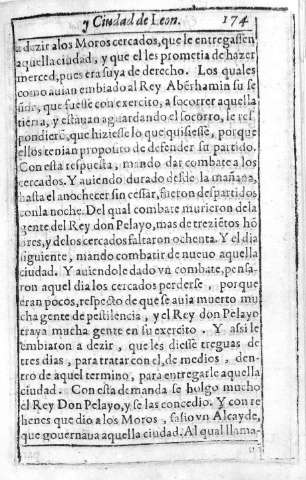 y Ciudad de Leon. 174
a dezir alos Moros cercados, que le entregassen
aquella ciudad, y que el les prometia de hazer
merced, pues era suya de derecho. Los quales
como auian embiado al Rey Aberhamin su se
ñor, que fuesse con exercito, a socorrer aquella
tierra, y estauan aguardando el socorro, le res
pondierõ, que hiziesse lo que quisiesse, porque
ellos tenian proposito de defender su partido.
Con esta respuesta, mando dar combate a los
cercados. Y auiendo durado desde la mañana,
hasta el anochecer sin cessar, fueron despartidos
con la noche. Del qual combate murieron de la
gente del Rey don Pelayo, mas de treziẽtos hõ
bres, y delos cercados faltaron ochenta. Y el dia
siguiente, mando combatir de nueuo aquella
ciudad. Y auiendole dado vn combate, pensa-
ron aquel dia los cercados perderse, porque
eran pocos, respecto de que se auia muerto mu
cha gente de pestilencia, y el Rey don Pelayo
traya mucha gente en su exercito. Y assi le
embiaron a dezir, que les diesse treguas de
tres dias, para tratar con el, de medios, den-
tro de aquel termino, para entregarle aquella
ciudad. Con esta demanda se holgo mucho
el Rey Don Pelayo, y se las concedio. Y con re
henes que dio a los Moros, salio vn Alcayde,
que gouernaua aquella ciudad. Al qual llama-